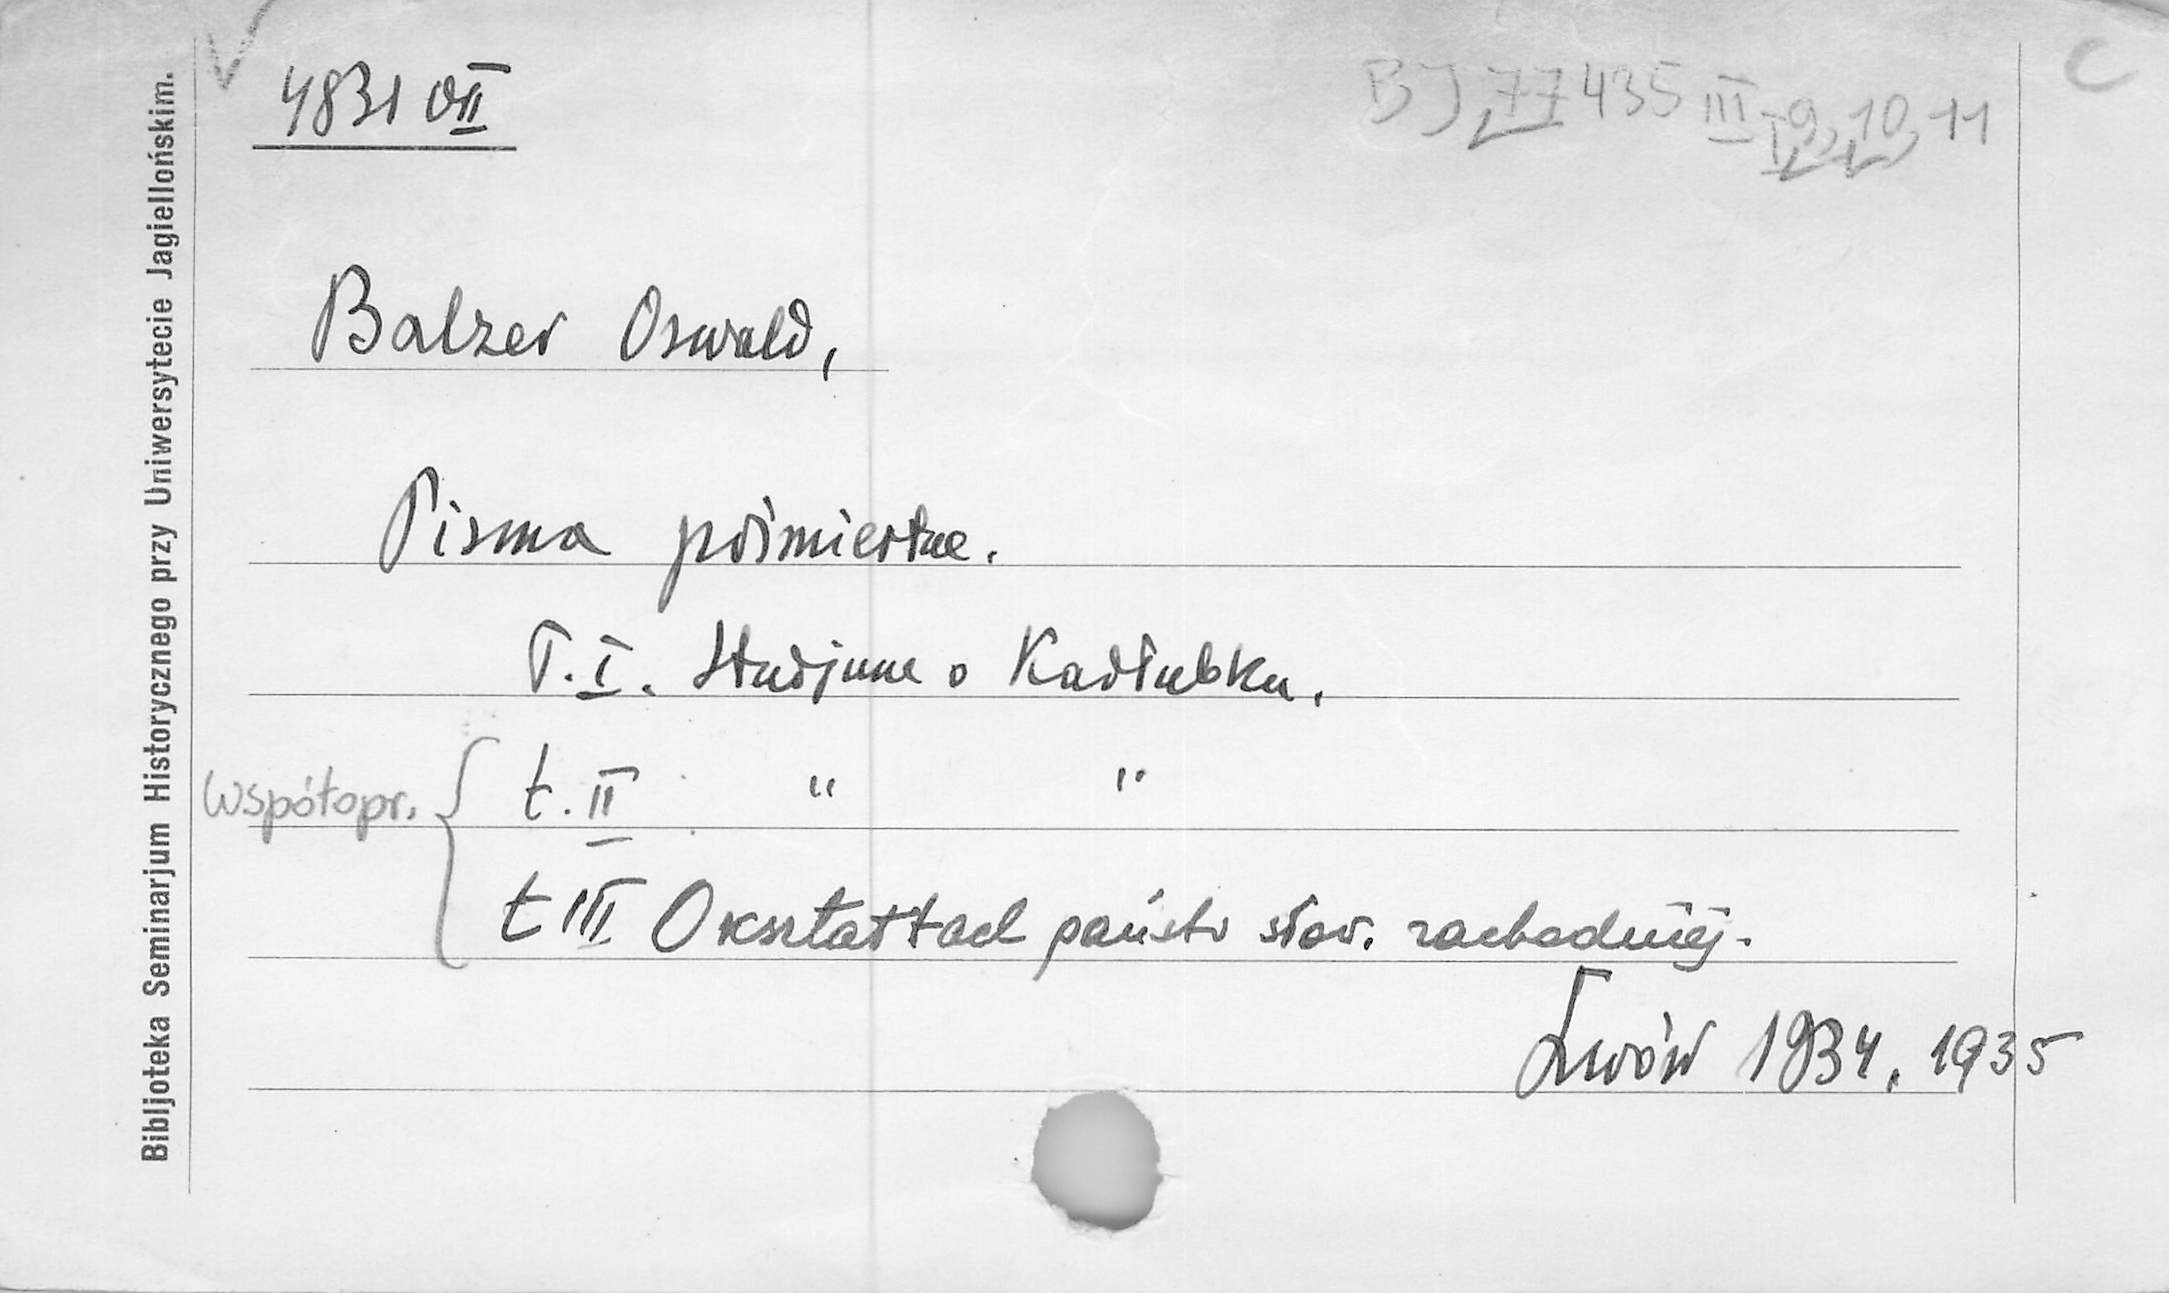 4831 VII
BJ 77435 III I 9, 10, 11
C
Balzer Oswald,
Pisma pośmiertne.
T. I. Studjum o Kadłubku.
Współopr.
t. II " "
t III O kształtach państw słow. zachodniej.
Lwów 1934, 1935
Bibljoteka Seminarjum Historycznego przy Uniwersytecie Jagiellońskim.